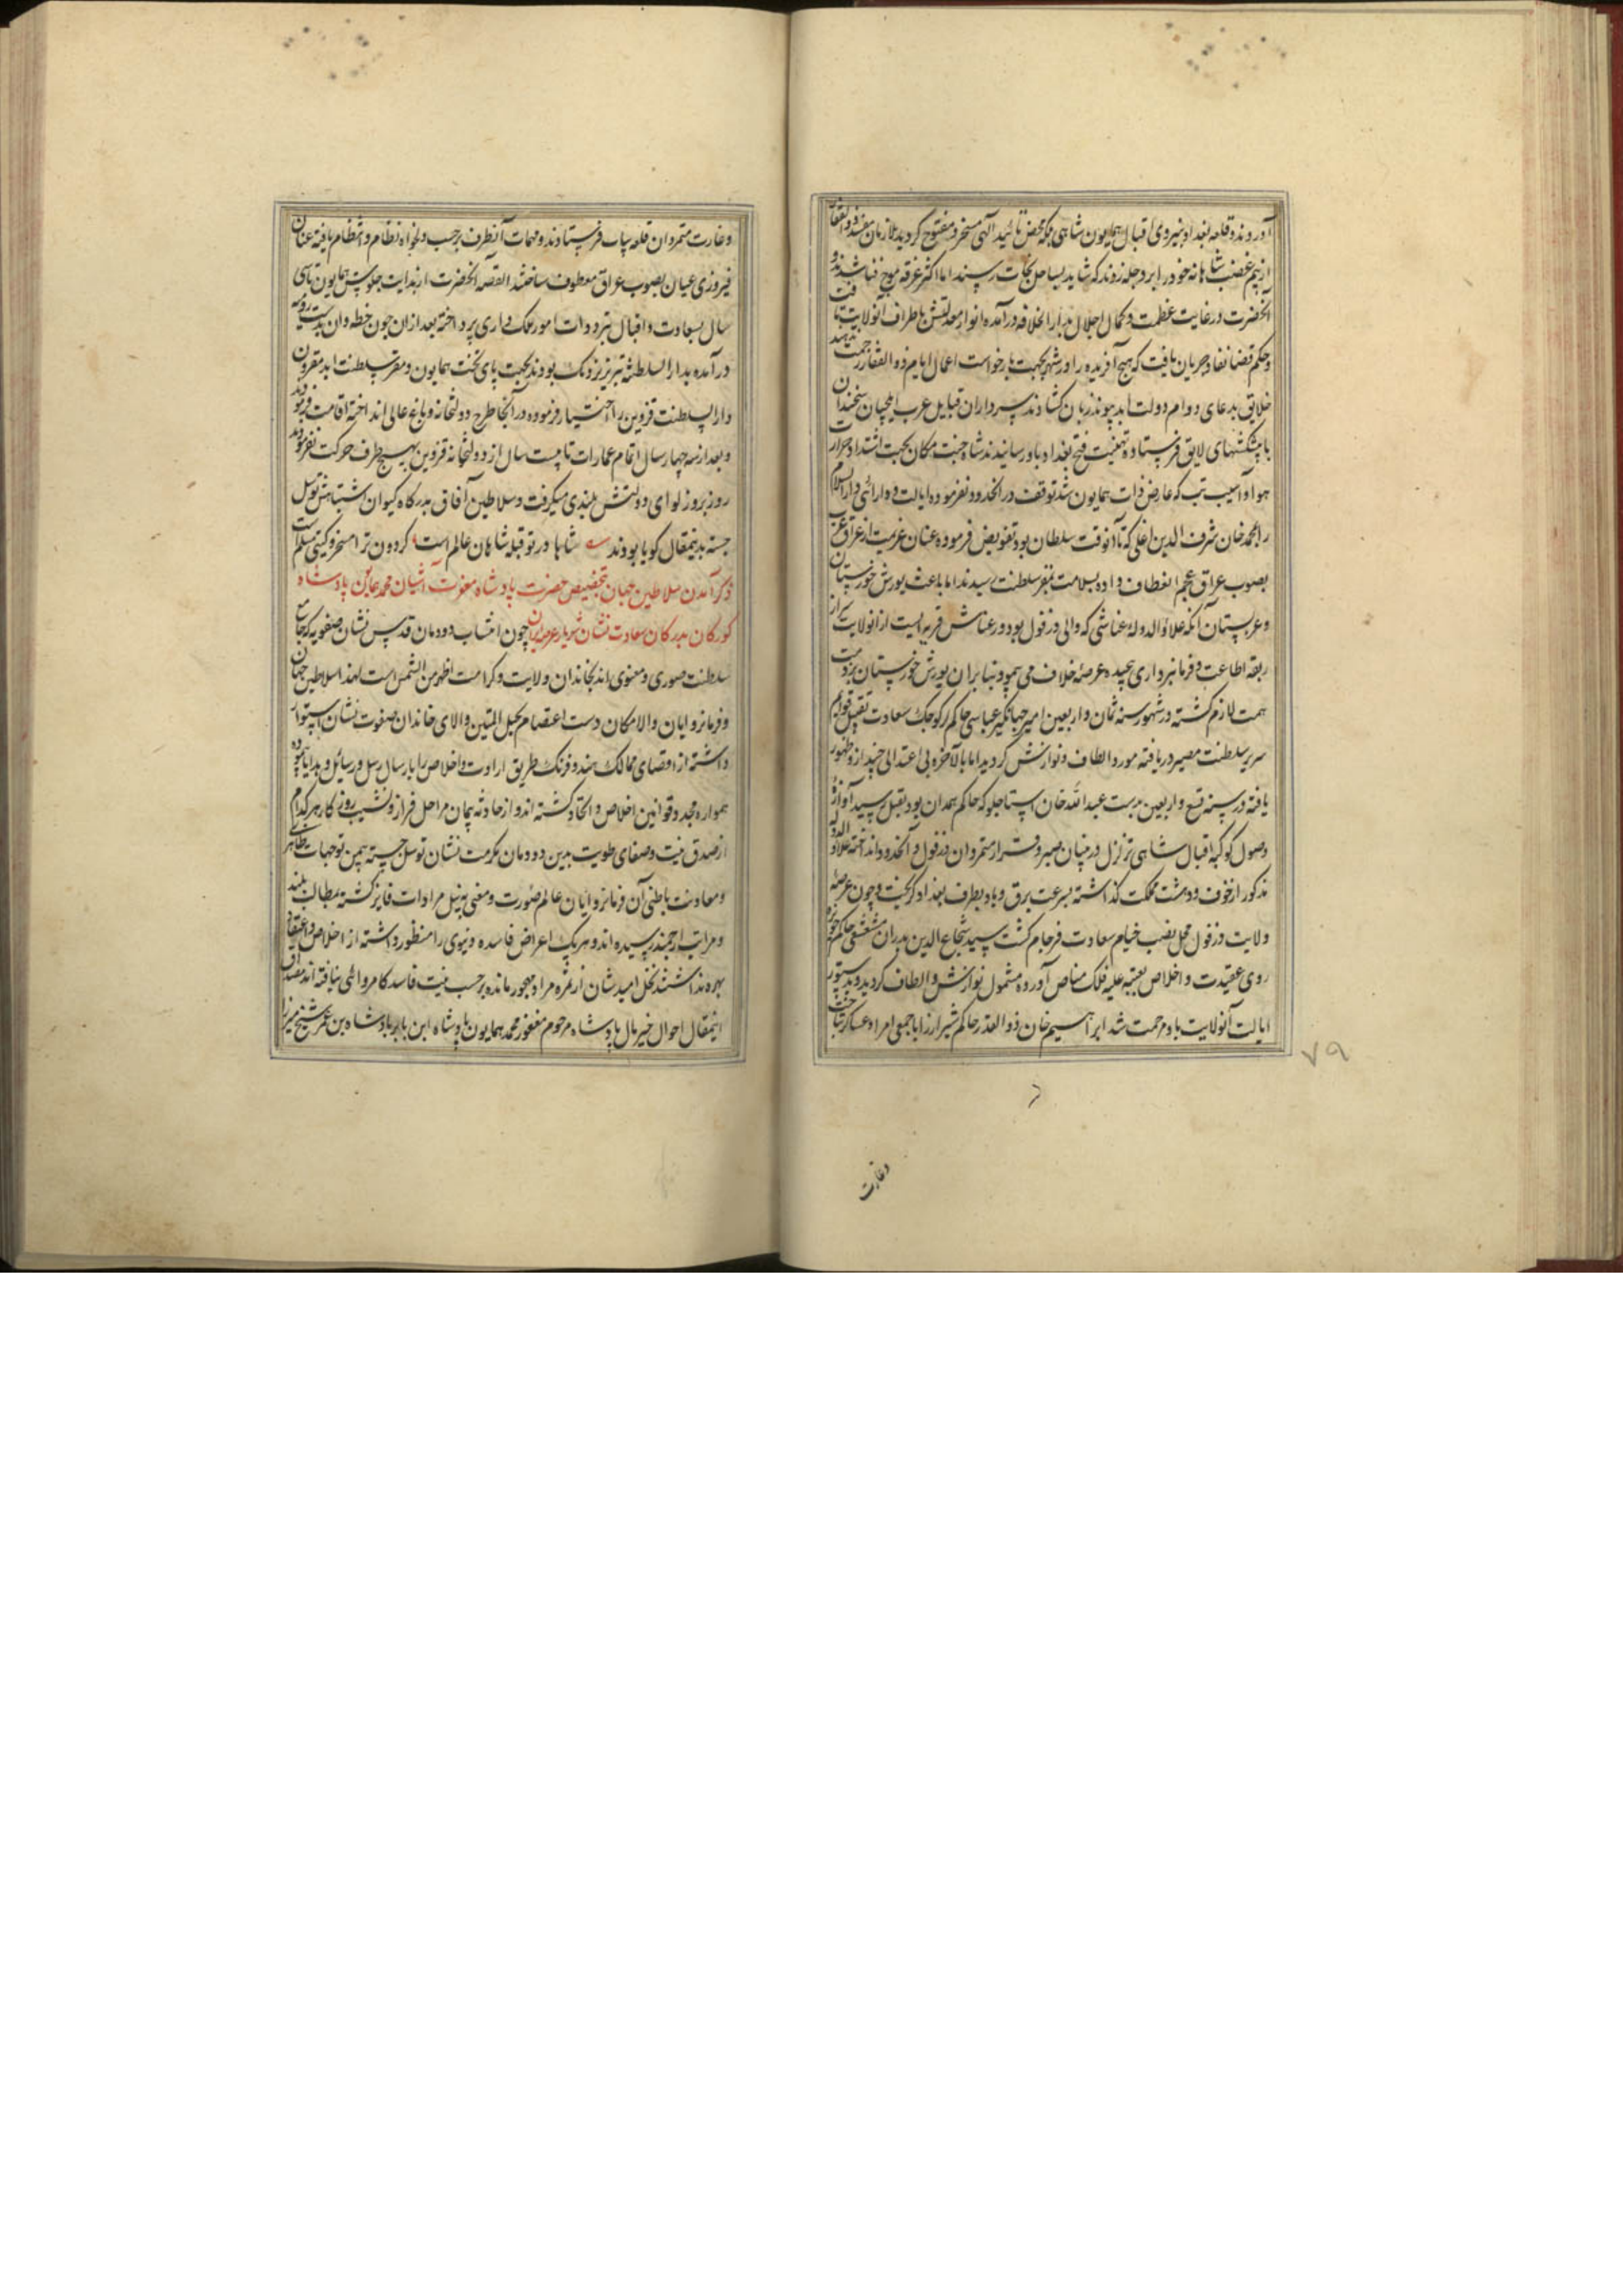 آوردند و قلعه بغداد بنیروی اقبال همایون شاهی بلکه محض تائید آلهی مسخر و مفتوح کردید ملازمان مفسد ذوالفقار
از بیم غضب شاهانه خود را بر دجله زدند که شاید بساحل نجات رسند اما اکثر غرقه موج فنا شدند و
آنحضرت در غایت عظمت و کمال اجلال بدار الخلافه درآمده انوار معدلتش باطراف آنولایت تافت
و حکم قضا نفاد جریان یافت که هیچ آفریده را در شهر بجهت بازخواست اعمال ایام ذو القفار زحمت ندهند
خلایق بدعای دوام دولت ابد پیوند زبان کشادند سرداران قبایل عرب ایلچیان سخندان
با پیشکشهای لایق فرستاده تهنیت فتح بغداد باو رسانیدند شاه جنت مکان بجهت اشتداد حرارت
هوا و آسیب تب که عارض ذات همایون شد توقف در انحدود نفرموده ایالت و دارائی دارالسلام
را بمحمد خان شرف الدین اغلی که تا آنوقت سلطان بود تفویض فرموده عنان عزیمت از عراق عرب
بصوب عراق عجم انعطاف داده بسلامت بمقر سلطنت رسیدند اما باعث یورش خوزستان
و عربستان آنکه علاؤ الدوله عناشی که والی دزفول بود و رعناش قریه ایست از انولایت سر از
ربقه اطاعت و فرمانبرداری پیچیده عرصه خلاف می پیمود بنا بران یورش خوزستان بر ذمت
همت لازم کشته در شهور سنه ثمان و اربعین امیر جهانکیر عباسی حاکم لر کوچک سعادت تقبیل قوایم
سریر سلطنت مصیر دریافته مورد الطاف و نوازش کردید اما بالآخره بی اعتدالی چند از و ظهور
یافته در سنه تسع و اربعین بدست عبد الله خان استاجلو که حاکم همدان بود بقتل رسید آوازهٔ
وصول کوکبه اقبال شاهی تزلزل در بنیان صبر و قرار متمردان دزفول و آنحدود انداخته علاؤ الدوله
مذکور از خوف و دهشت مملکت کذاشته بسرعت برق و باد بطرف بغداد کریخت و چون عرصه
ولایت دزفول محل نصب خیام سعادت فرجام کشت سید شجاع الدین بدران مشعشعی حاکم حویزه
روی عقیدت و اخلاص بعتبه علیه فلک مناص آورده مشمول نوازش و الطاف کردید و بدستور
ایالت آنولایت باو مرحمت شد ابراهیم خان ذو القدر حاکم شیراز را با جمعی امراء عساکر بتاخت
۷۹
وغارت
وغارت متمردان قلعه بیات فرستادند و مهمات آنطرف برحسب دلخواه نظام و انتظام یافته عنان
فیروزی عیان بصوب عراق معطوف ساختند القصه آنحضرت از بدایت جلوس همایون تا سی
سال بسعادت و اقبال بتردوات امور مملکت داری پرداخته بعد از ان چون خطه وان بدست رومیه
درآمده بدار السلطنه تبریز نزدیک بودند بجهت پای تخت همایون و مقر سلطنت ابد مقرون
دارالسلطنت قزوین را اختیار فرموده در آنجا طرح دولتخانه و باغ عالی انداخته اقامت فرمودند
و بعد از سه چهار سال اتمام عمارات تا بیست سال از دولتخانه قزوین بهیچ طرف حرکت نفرمودند
روز بروز لوای دولتش بلندی میکرفت و سلاطین آفاق بدرکاه کیوان اشتباهش توسل
جسته بدینمقال کویا بودند شاها در تو قبله شاهان عالم است کردون ترا مسخر و کیتی مسلم است
ذکر آمدن سلاطین جهان بتخصیص حضرت پادشاه مغفرت آشیان محمد همایون پادشاه
کورکان بدرکان سعادت نشان شهریار عرصه ایران چون انتساب دودمان قدس نشان صفویه که جامع
سلطنت صوری و معنوی اند بخاندان ولایت و کرامت اظهر من الشمس است لهذا سلاطین جهان
و فرمانروایان والامکان دست اعتصام بحبل المتین والای خاندان صفوت نشان استوار
داشته از اقصای ممالک هند و فرنک طریق ارادت و اخلاص را بارسال رسل و رسائل و هدایا پیموده
همواره مجدد قوانین اخلاص و اتحاد کشته اند و از حادثه پیمان مراحل فراز و نشیب روزکار هر کدام
از صدق نیت و صفای طویت بدین دودمان مکرمت نشان توسل جسته بیمن توجهات ظاهری
و معاونت باطنی آن فرمانروایان عالم صورت و معنی بنیل مرادات فایز کشته بمطالب بلند
و مراتب ارجمند رسیده اند و هر یک اعراض فاسده دنیوی را منظور داشته از اخلاص و اعتقاد
بهره نداشتند نخل امیدشان از ثمره مراد مهجور مانده برحسب نیت فاسد کامروائی نیافته اند مصداق
اینمقال احوال خیر مال پادشاه مرحوم مغفور محمد همایون پادشاه ابن بابر پادشاه بن عمر شیخ میرزا